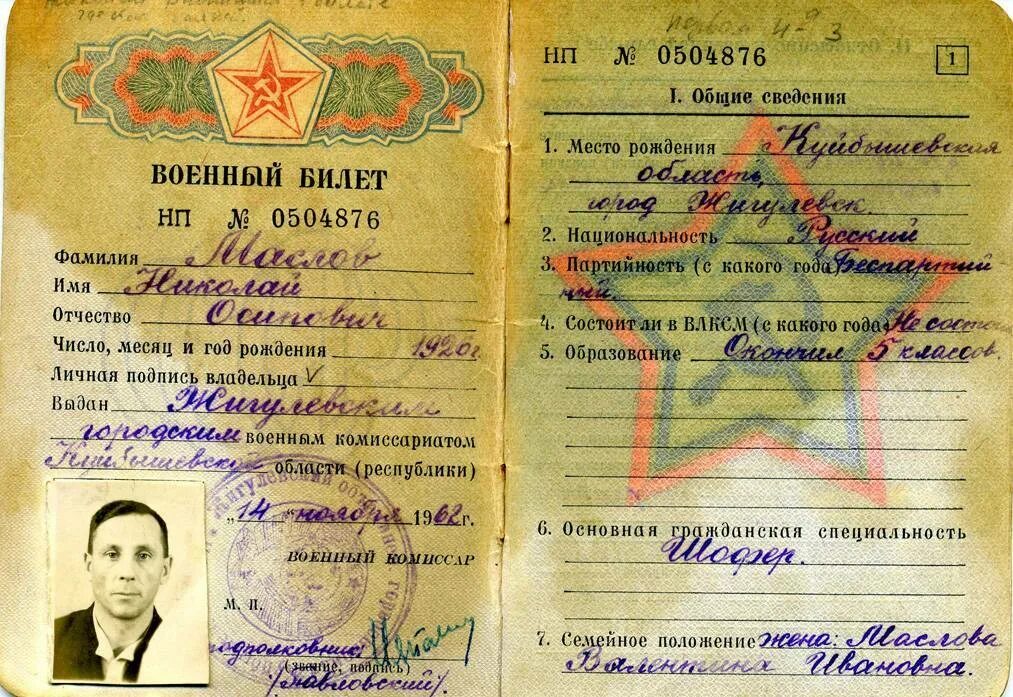 ВОЕННЫЙ БИЛЕТ
НП № 0504876
Фамилия Маслов
Имя Николай
Отчество Осипович
Число, месяц и год рождения 1920г.
Личная подпись владельца V
Выдан Жигулевским
городским военным комиссариатом
Куйбышевской области (республики)
„14 “ ноября 1962г.
ВОЕННЫЙ КОМИССАР
М. П.
подполковник
(звание, подпись)
/Павловский/.
первая 4-9 3
НП № 0504876 1
I. Общие сведения
1. Место рождения Куйбышевская
область,
город Жигулевск.
2. Национальность Русский
3. Партийность (с какого года) Беспартий
ный.
4. Состоит ли в ВЛКСМ (с какого года) Не состоит
5. Образование Окончил 5 классов.
6. Основная гражданская специальность
Шофер.
7. Семейное положение жена: Маслова
Валентина Ивановна.